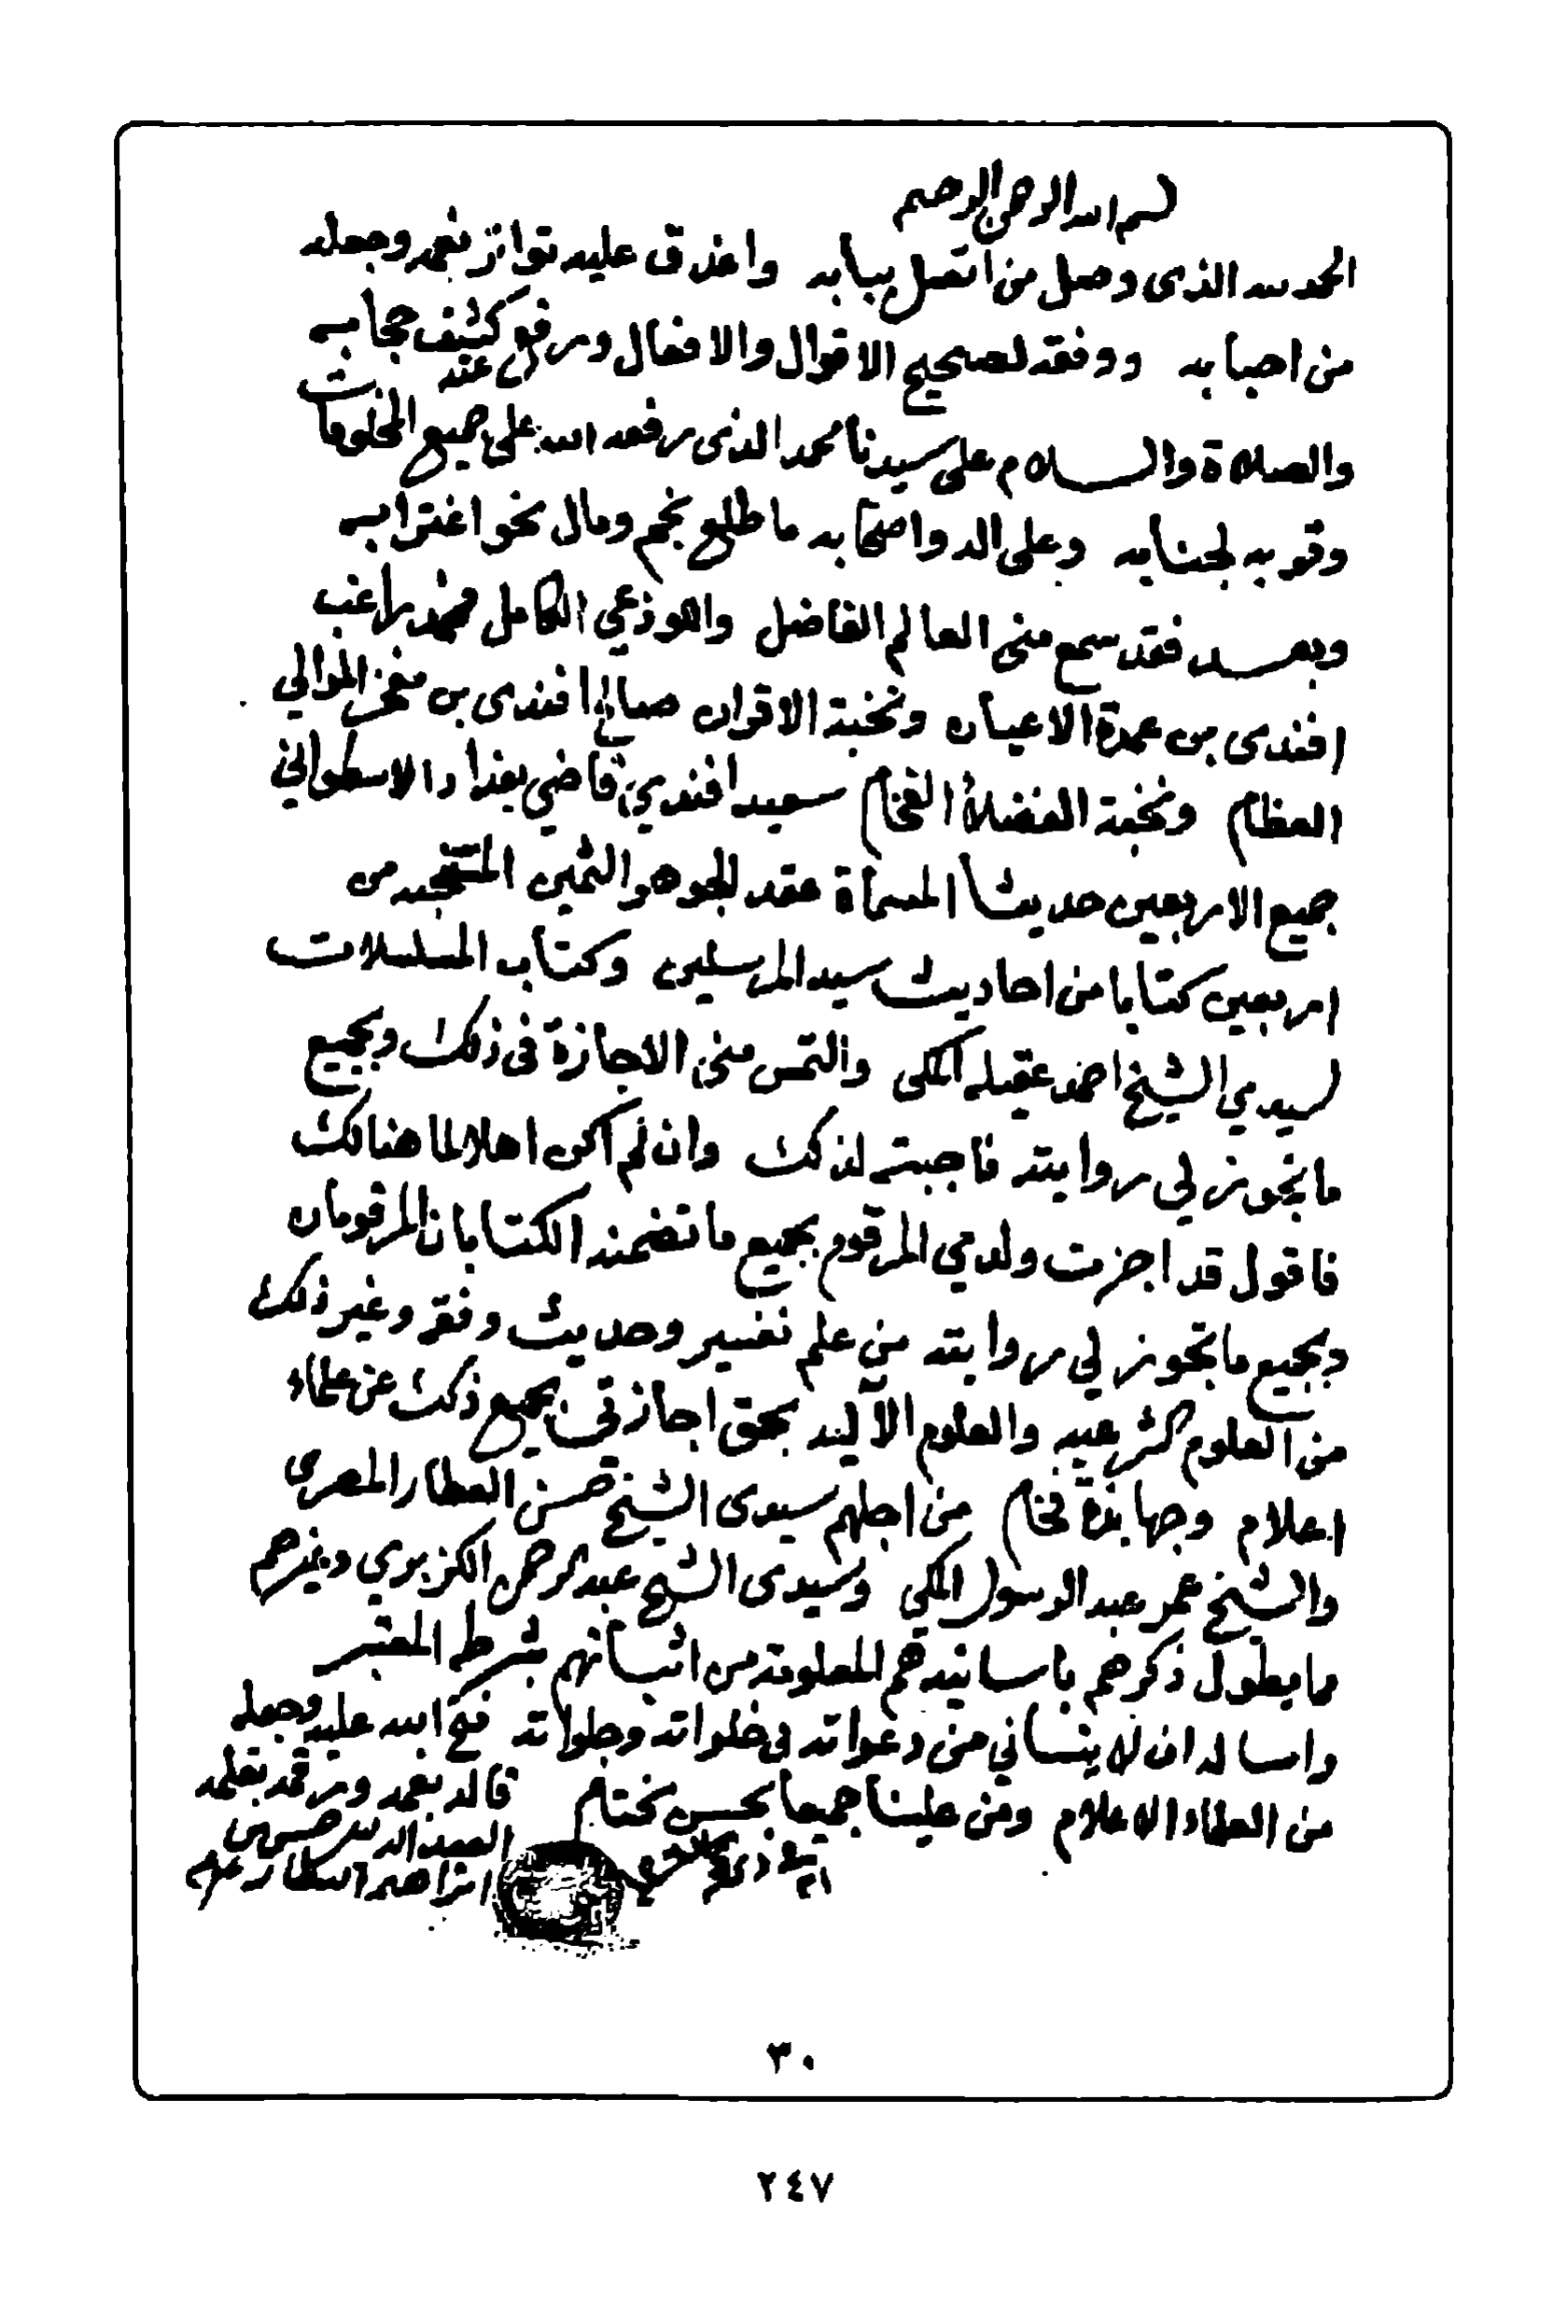 بسم الله الرحمن الرحيم
الحمد لله الذى وصل من اتصل ببابه واغدق عليه تواتر نعمه وجعله
من احبابه ووفقه لصحيح الاقوال والافعال ورفع عنه كشف حجابه
والصلاة والسلام على سيدنا محمد الذى رفعه الله على جميع المخلوقات
وقربه لجنابه وعلى اله واصحابه ما طلع نجم ومال نحو اغترابه
وبعد فقد سمع منى العالم الفاضل واللوذعي الكامل محمد راغب
افندى بن عمدة الاعيان ونخبة الاقران صالح افندى بن مفخر الموالي
العظام ونخبة الفضلاء الفخام سعيد افندي قاضي بغداد الاسطواني
جميع الاربعين حديثا المسماة عقد الجوهر الثمين المنتخبه من
اربعين كتابا من احاديث سيد المرسلين وكتاب المسلسلات
لسيدي الشيخ احمد عقيله المكى والتمس منى الاجازة فى ذلك وبجميع
ما تجوز لي روايته فاجبته لذلك وان لم اكن اهلا لما هنالك
فاقول قد اجزت ولدي المرقوم بجميع ما تضمنه الكتابان المرقومان
وبجميع ما تجوز لي روايته من علم تفسير وحديث وفقه وغير ذلك
من العلوم الشرعيه والعلوم الآليه بحق اجازتي بجميع ذلك عن علماء
اعلام وجهابذة فخام من اجلهم سيدى الشيخ حسن العطار المصرى
والشيخ عمر عبد الرسول المكي وسيدى الشيخ عبد الرحمن الكزبري وغيرهم
ما يطول ذكرهم باسانيدهم المعلومة من اثباتهم بشرط المعتبر
واساله ان لا ينساني من دعواته في خلواته وجلواته فتح الله عليه وجعله
من العلماء الاعلام ومن علينا جميعا بحسن ختام قاله بفمه ورقمه بقلمه
٣٠
٢٤٧